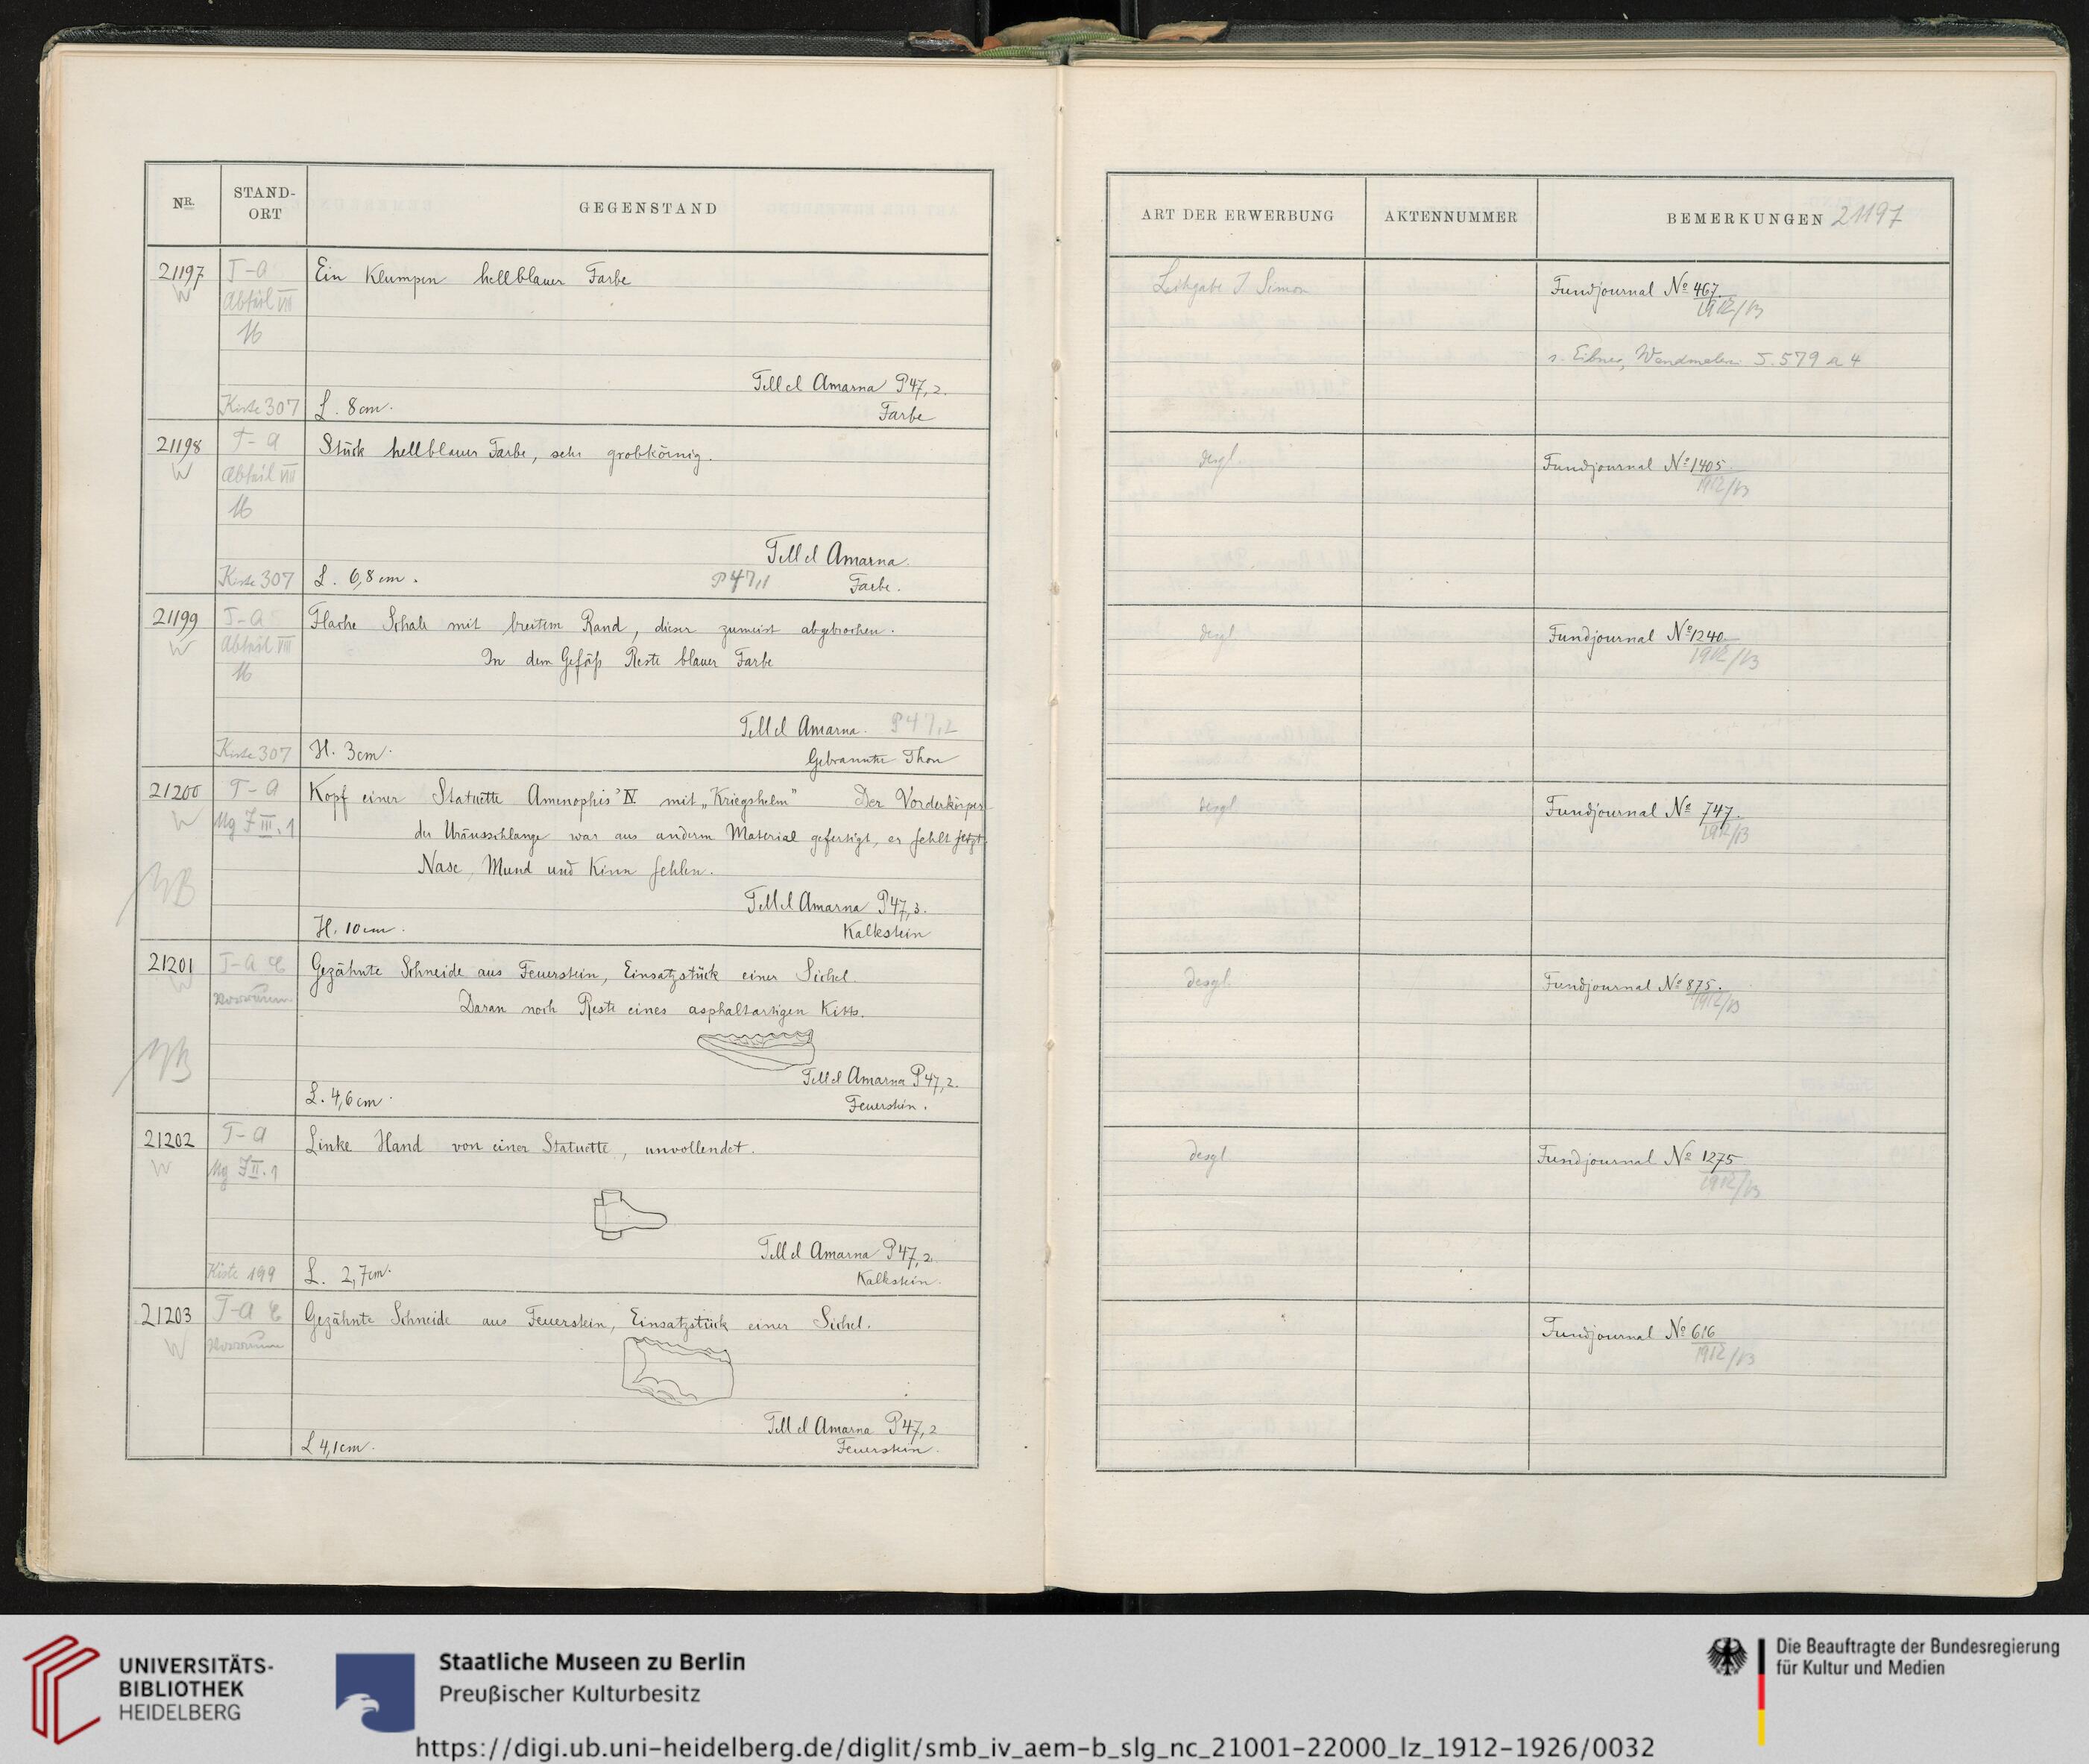 NR.
STAND-
ORT
GEGENSTAND
21197
W
T-A
Abteil VII
16
Kiste 307
Ein Klumpen hellblauer Farbe
Tell el Amarna P47,2.
L. 8cm.
Farbe
21198
W
T-A
Abteil VII
16
Kiste 307
Stück hellblauer Farbe, sehr grobkörnig.
Tell el Amarna.
L. 6,8cm.
P47,1
Farbe.
21199
W
T-A
Abteil VII
16
Kiste 307
Flache Schale mit breitem Rand, dieser zumeist abgebrochen.
In dem Gefäß Reste blauer Farbe
Tell el Amarna. P47,2
H. 3cm.
Gebrannter Thon
21200
W
T-A
Mg F III.1
Kopf einer Statuette Amenophis' IV mit „Kriegshelm" Der Vorderkörper
der Uräusschlange war aus anderm Material gefertigt, er fehlt jetzt
Nase, Mund und Kinn fehlen.
Tell el Amarna P47,3.
H. 10cm.
Kalkstein
21201
W
T-A
Gezähnte Schneide aus Feuerstein, Einsatzstück einer Sichel.
Daran noch Reste eines asphaltartigen Kitts.
Tell el Amarna P47,2.
L. 4,6cm.
Feuerstein.
21202
W
T-A
Mg F II.1
Kiste 199
Linke Hand von einer Statuette, unvollendet.
Tell el Amarna P47,2.
L. 2,7cm.
Kalkstein.
21203
W
T-A
Gezähnte Schneide aus Feuerstein, Einsatzstück einer Sichel.
Tell el Amarna P47,2
L 4,1cm.
Feuerstein.
ART DER ERWERBUNG
AKTENNUMMER
BEMERKUNGEN 21197
Leihgabe J Simon
Fundjournal No 467.
1912/13
s. Eibner, Wandmalerei S. 579 a 4
desgl.
Fundjournal No 1405.
1912/13
desgl
Fundjournal No 1240.
1912/13
desgl
Fundjournal No 747.
1912/13
desgl.
Fundjournal No 875.
1912/13
desgl
Fundjournal No 1275
1912/13
Fundjournal No 616
1912/13
UNIVERSITÄTS-
BIBLIOTHEK
HEIDELBERG
Staatliche Museen zu Berlin
Preußischer Kulturbesitz
Die Beauftragte der Bundesregierung
für Kultur und Medien
https://digi.ub.uni-heidelberg.de/diglit/smb_iv_aem-b_slg_nc_21001-22000_lz_1912-1926/0032